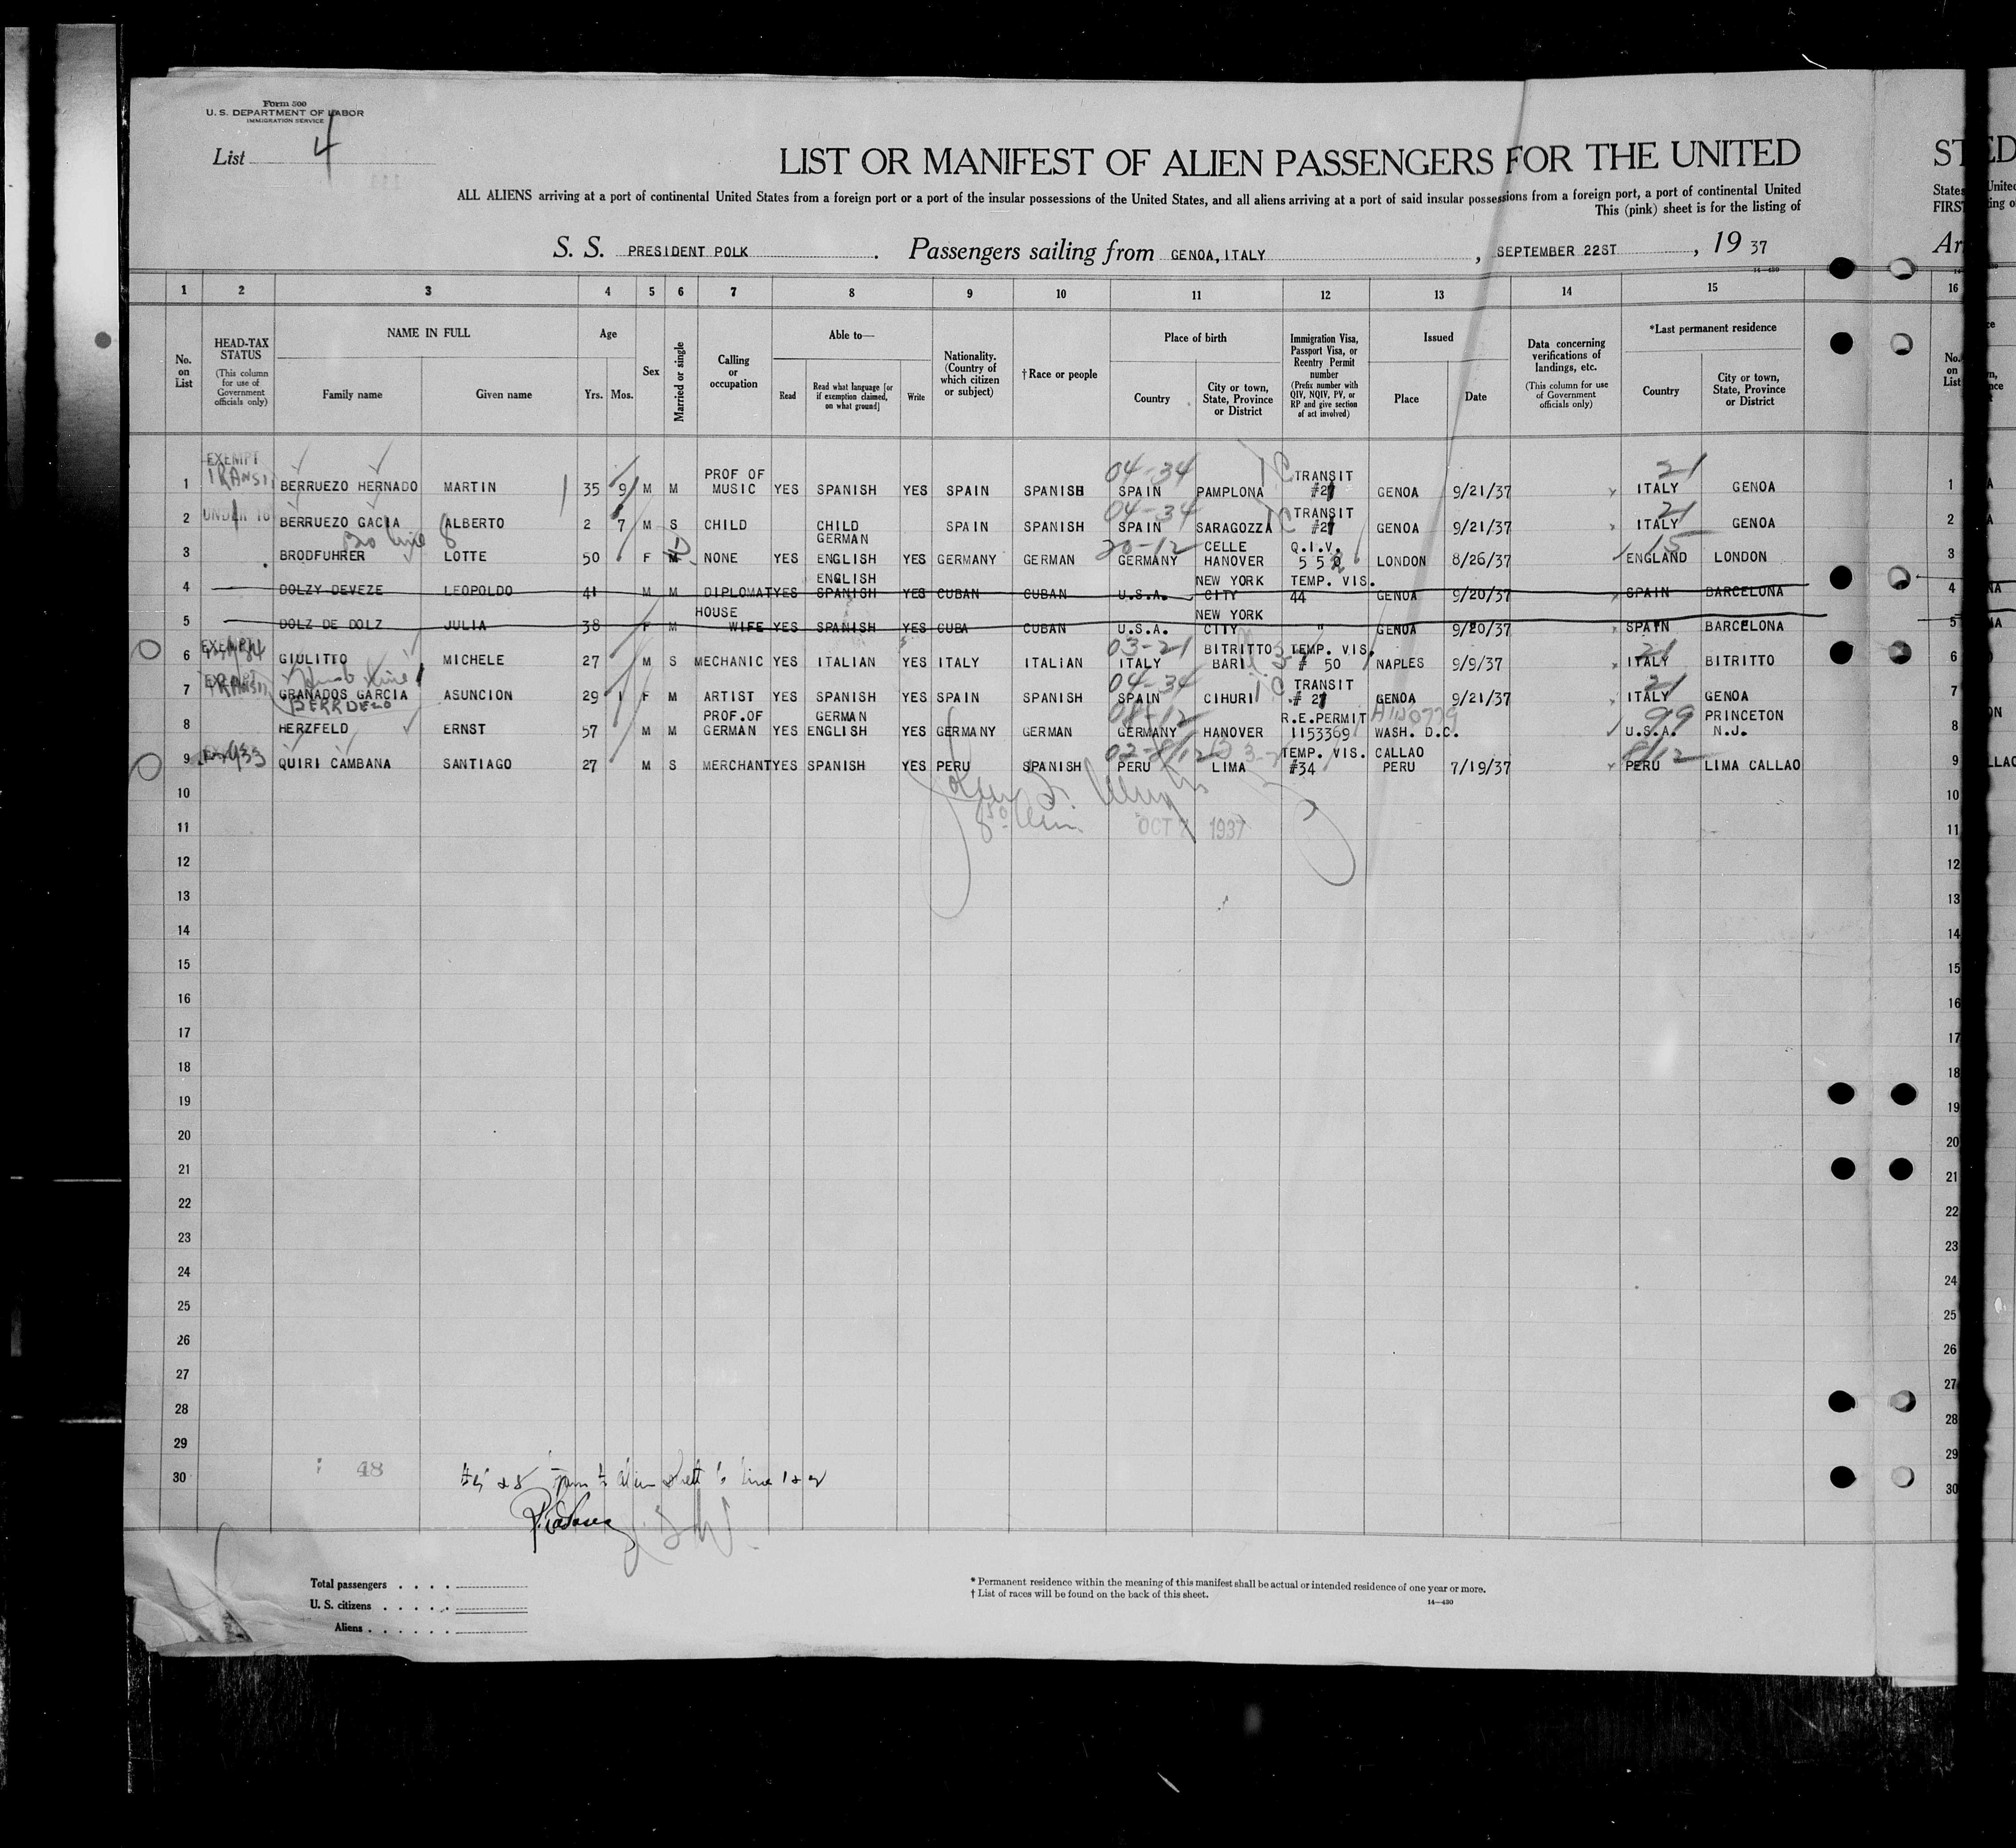 Form 500
U. S. DEPARTMENT OF LABOR
IMMIGRATION SERVICE
List 4
LIST OR MANIFEST OF ALIEN PASSENGERS FOR THE UNITED
ST
ED
ALL ALIENS arriving at a port of continental United States from a foreign port or a port of the insular possessions of the United States, and all aliens arriving at a port of said insular possessions from a foreign port, a port of continental United
States
This (pink) sheet is for the listing of
FIRST
S. S. PRESIDENT POLK . Passengers sailing from GENOA, ITALY , SEPTEMBER 22ST , 19 37
Ar
14—430
1 2 3 4 5 6 7 8 9 10 11 12 13 14 15 16
No. on List
HEAD-TAX STATUS (This column for use of Government officials only)
NAME IN FULL
Family name Given name
Age
Yrs. Mos.
Sex
Married or single
Calling or occupation
Able to—
Read
Read what language [or if exemption claimed, on what ground]
Write
Nationality. (Country of which citizen or subject)
† Race or people
Place of birth
Country
City or town, State, Province or District
Immigration Visa, Passport Visa, or Reentry Permit number (Prefix number with QIV, NQIV, PV, or RP and give section of act involved)
Issued
Place Date
Data concerning verifications of landings, etc. (This column for use of Government officials only)
*Last permanent residence
Country
City or town, State, Province or District
No. on List
EXEMPT TRANSIT 04-34 21
1 BERRUEZO HERNADO MARTIN 35 9 M M PROF OF MUSIC YES SPANISH YES SPAIN SPANISH SPAIN PAMPLONA TRANSIT #21 GENOA 9/21/37 ITALY GENOA 1
UNDER 16 04-34 21
2 BERRUEZO GACIA ALBERTO 2 7 M S CHILD CHILD SPAIN SPANISH SPAIN SARAGOZZA TRANSIT #21 GENOA 9/21/37 ITALY GENOA 2
line 8 D 20-12 15
3 BRODFUHRER LOTTE 50 F M NONE YES GERMAN ENGLISH YES GERMANY GERMAN GERMANY CELLE HANOVER Q.I.V. 552 LONDON 8/26/37 ENGLAND LONDON 3
4 DOLZY DEVEZE LEOPOLDO 41 M M DIPLOMAT YES ENGLISH SPANISH YES CUBAN CUBAN U.S.A. NEW YORK CITY TEMP. VIS. 44 GENOA 9/20/37 SPAIN BARCELONA 4
5 DOLZ DE DOLZ JULIA 38 F M HOUSE WIFE YES SPANISH YES CUBA CUBAN U.S.A. NEW YORK CITY " GENOA 9/20/37 SPAIN BARCELONA 5
03-21 21
6 GIULITTO MICHELE 27 M S MECHANIC YES ITALIAN YES ITALY ITALIAN ITALY BITRITTO BARI TEMP. VIS. # 50 NAPLES 9/9/37 ITALY BITRITTO 6
TRANSIT line 1 04-34 21
7 GRANADOS GARCIA ASUNCION 29 1 F M ARTIST YES SPANISH YES SPAIN SPANISH SPAIN CIHURI TRANSIT # 21 GENOA 9/21/37 ITALY GENOA 7
08-12 99
8 HERZFELD ERNST 57 M M PROF. OF GERMAN YES GERMAN ENGLISH YES GERMANY GERMAN GERMANY HANOVER R.E.PERMIT 1153369 WASH. D.C. U.S.A. PRINCETON N.J. 8
02-8/12 8/12
9 QUIRI CAMBANA SANTIAGO 27 M S MERCHANT YES SPANISH YES PERU SPANISH PERU LIMA TEMP. VIS. #34 CALLAO PERU 7/19/37 PERU LIMA CALLAO 9
10 10
11 OCT 7 1937 11
12 12
13 13
14 14
15 15
16 16
17 17
18 18
19 19
20 20
21 21
22 22
23 23
24 24
25 25
26 26
27 27
28 28
29 29
48
30 30
Total passengers . . . .
U. S. citizens . . . . .
Aliens . . . . . .
* Permanent residence within the meaning of this manifest shall be actual or intended residence of one year or more.
† List of races will be found on the back of this sheet.
14—430